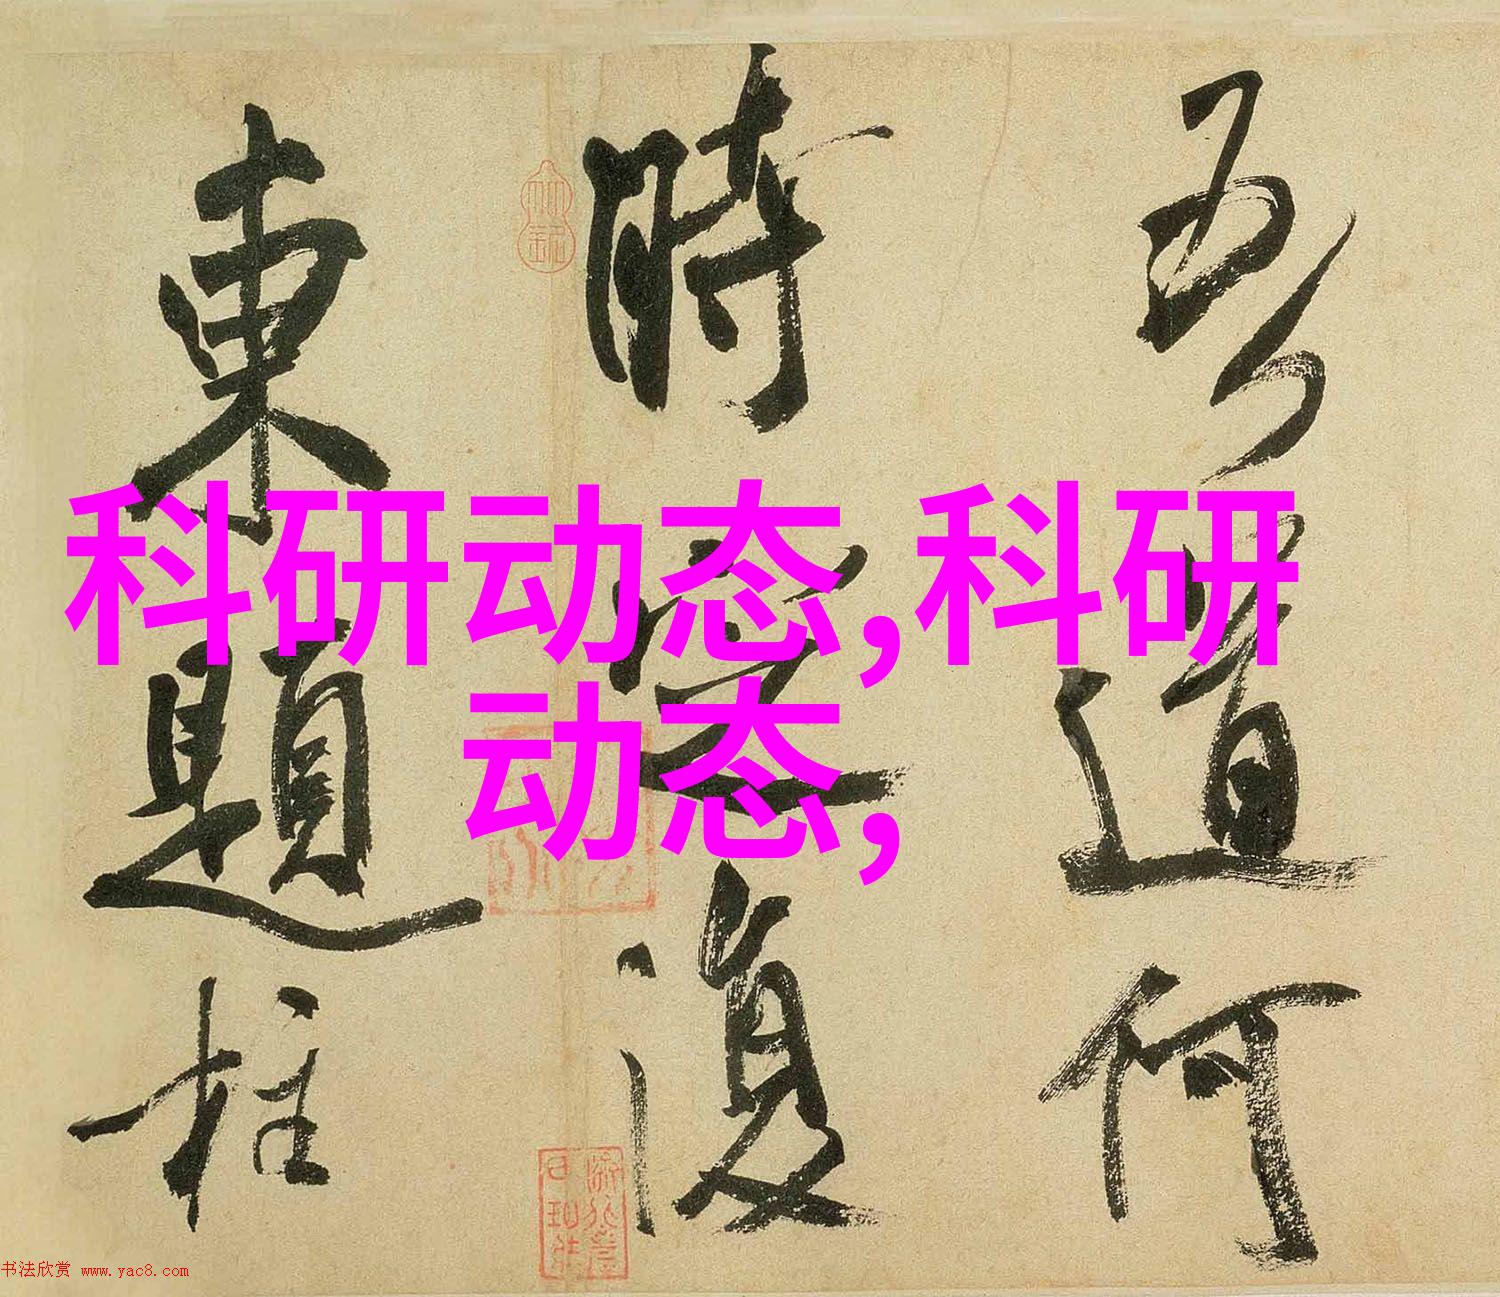 吾道何
時定復
東題柱
科研动态,科研
动态,
书法欣赏 www.yac8.com